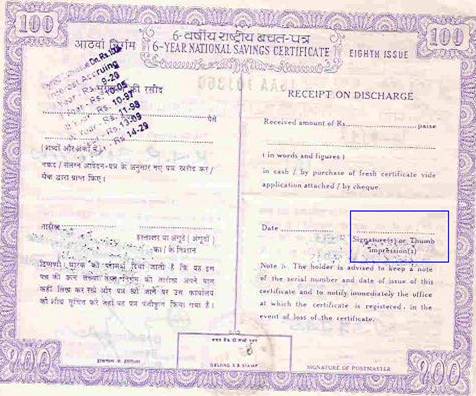 100
100
6-वर्षीय राष्ट्रीय बचत-पत्र
आठवां निर्गम
6-YEAR NATIONAL SAVINGS CERTIFICATE
EIGHTH ISSUE
Accruing
9-20
10-05
10-97
11-98
Rs. 13-09
Rs. 14-29
की रसीद
RECEIPT ON DISCHARGE
पैसे
Received amount of Rs. paise
(शब्दों और अंकों में)
( in words and figures )
नकद / संलग्न आवेदन-पत्र के अनुसार नए पत्र खरीद कर /
चैक द्वारा प्राप्त किए।
in cash / by purchase of fresh certificate vide
application attached / by cheque.
तारीख
हस्ताक्षर या अंगूठे (अंगूठों)
का / के निशान
Date
Signature(s) or Thumb
impression(s)
टिप्पणी: धारक को परामर्श दिया जाता है कि वह इस
पत्र की क्रम संख्या तथा निर्गम की तारीख अपने पास
कहीं लिख कर रखे और पत्र खो जाने पर उस कार्यालय
को शीघ्र सूचित करे जहाँ यह पत्र पंजीकृत किया गया है।
Note : The holder is advised to keep a note
of the serial number and date of issue of this
certificate and to notify immediately the office
at which the certificate is registered, in the
event of loss of the certificate.
100
100
OBLONG S B STAMP
SIGNATURE OF POSTMASTER